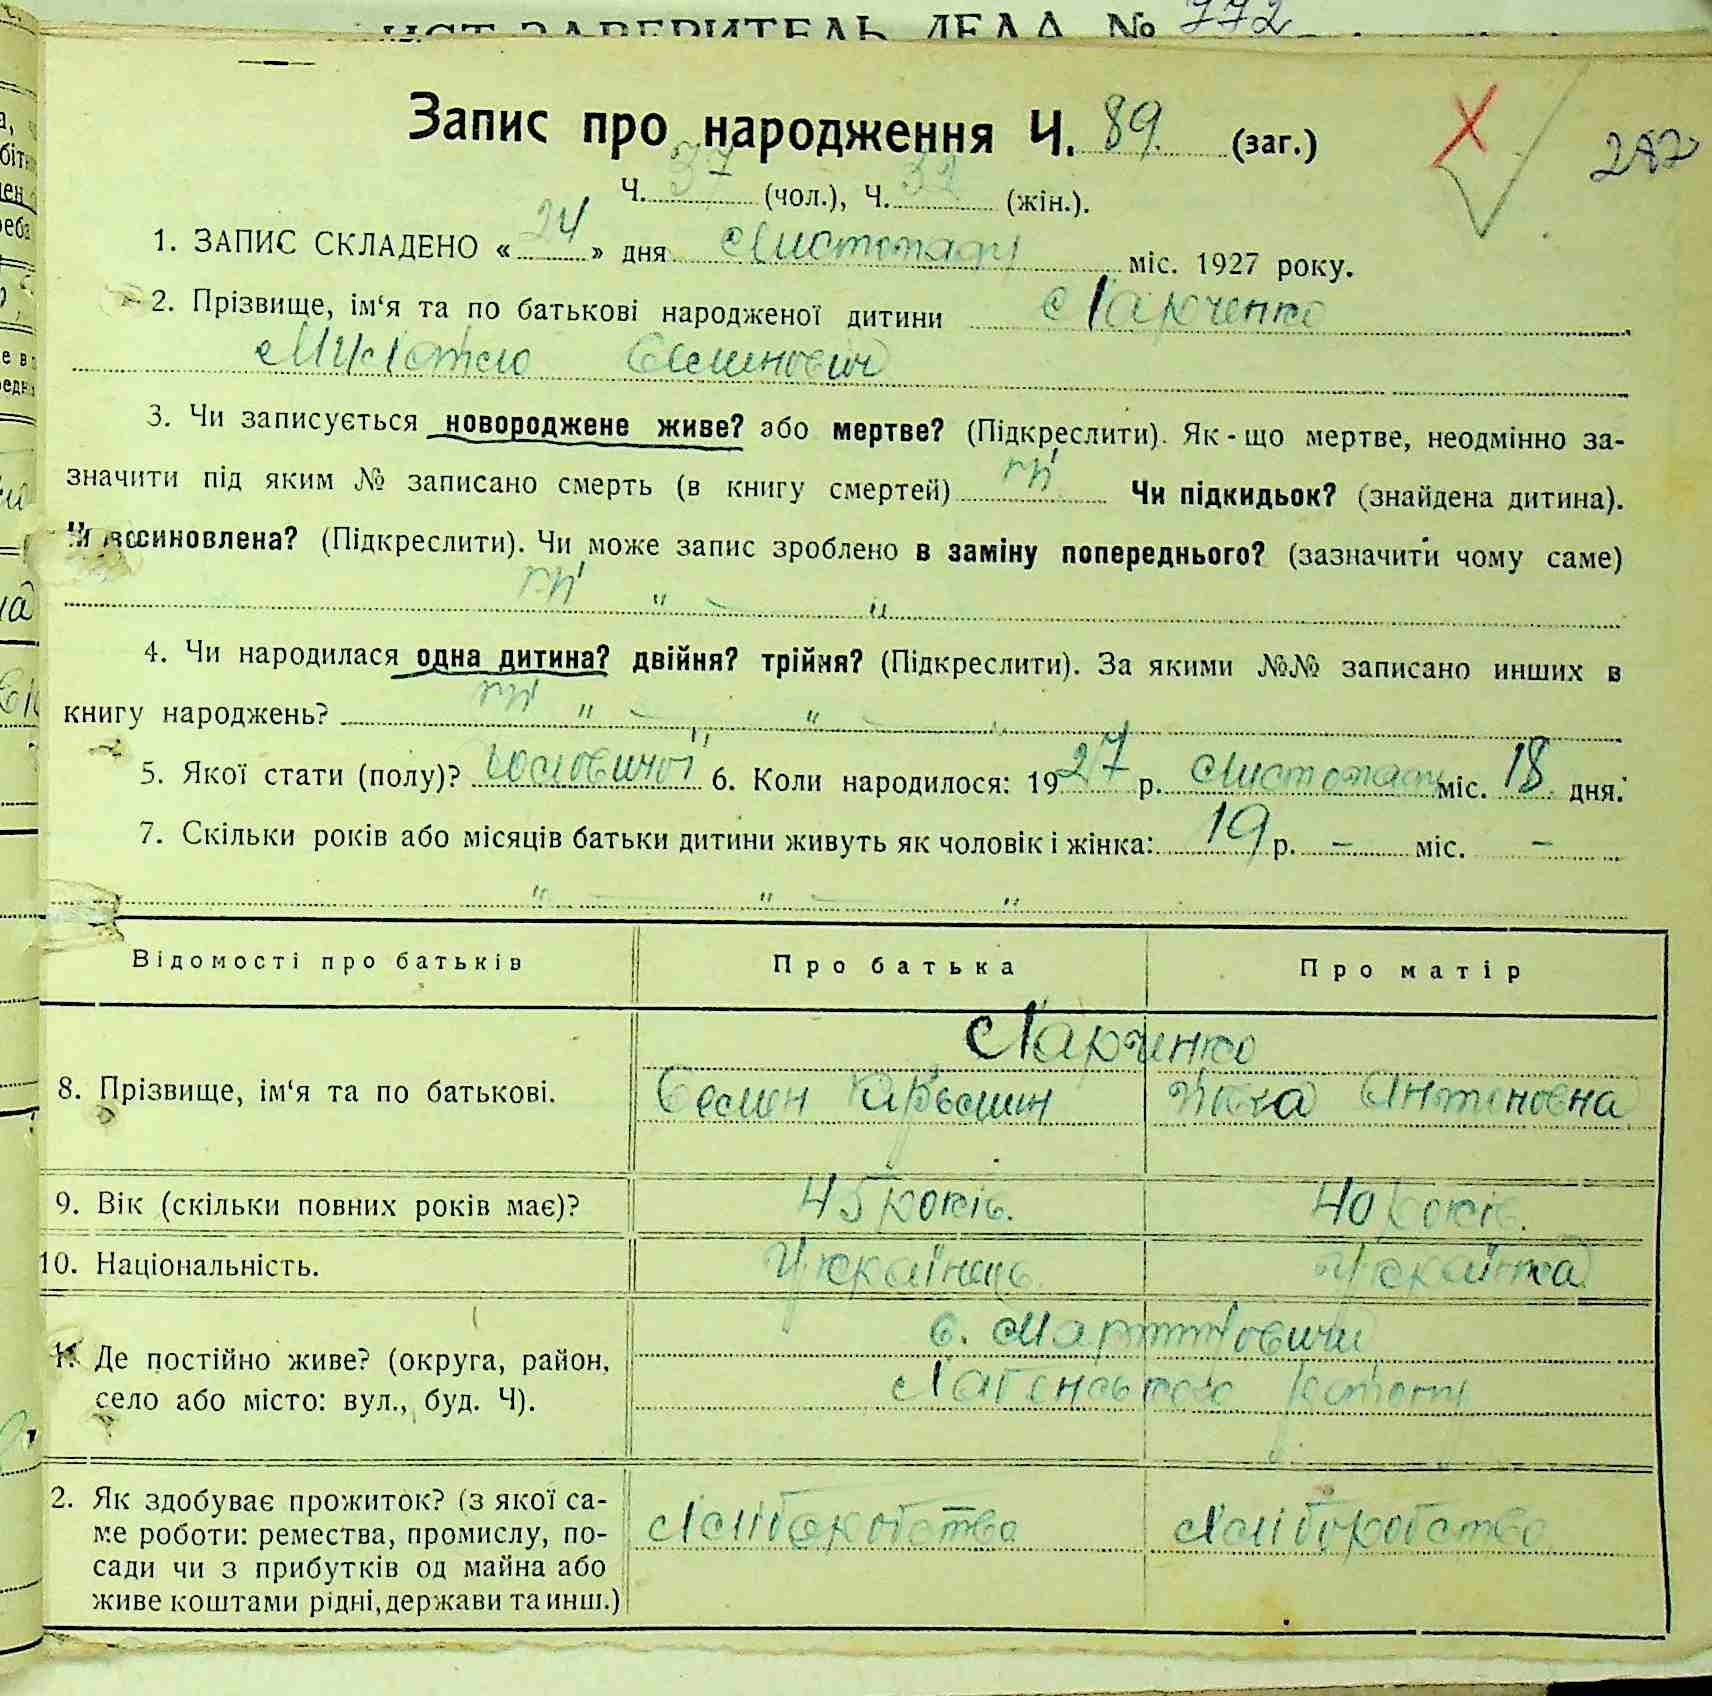 ЛИСТ-ЗАВЕРИТЕЛЬ ДЕЛА № 772
Запис про народження Ч. 89. (заг.)
287
Ч. 37 (чол.), Ч. (жін.).
1. ЗАПИС СКЛАДЕНО «24» дня Листопаду міс. 1927 року.
2. Прізвище, ім'я та по батькові народженої дитини Ларченко
Семенович
3. Чи записується новороджене живе? або мертве? (Підкреслити). Як-що мертве, неодмінно за-
значити під яким № записано смерть (в книгу смертей) ні Чи підкидьок? (знайдена дитина).
Чи всиновлена? (Підкреслити). Чи може запис зроблено в заміну попереднього? (зазначити чому саме)
ні " — "
4. Чи народилася одна дитина? двійня? трійня? (Підкреслити). За якими №№ записано инших в
книгу народжень? ні " — " —
5. Якої стати (полу)? чоловичої 6. Коли народилося: 1927 р. Листопаду міс. 18 дня.
7. Скільки років або місяців батьки дитини живуть як чоловік і жінка: 19 р. – міс. –
" — " — "
Відомості про батьків Про батька Про матір
Ларченко
8. Прізвище, ім'я та по батькові. Семен Антоновна
9. Вік (скільки повних років має)? 45 років. 40 років.
10. Національність. Українець Українка
с. Мартиновичи
Де постійно живе? (округа, район,
село або місто: вул., буд. Ч).
2. Як здобуває прожиток? (з якої са-
ме роботи: ремества, промислу, по- Хліборобство Хліборобство
сади чи з прибутків од майна або
живе коштами рідні, держави та инш.)